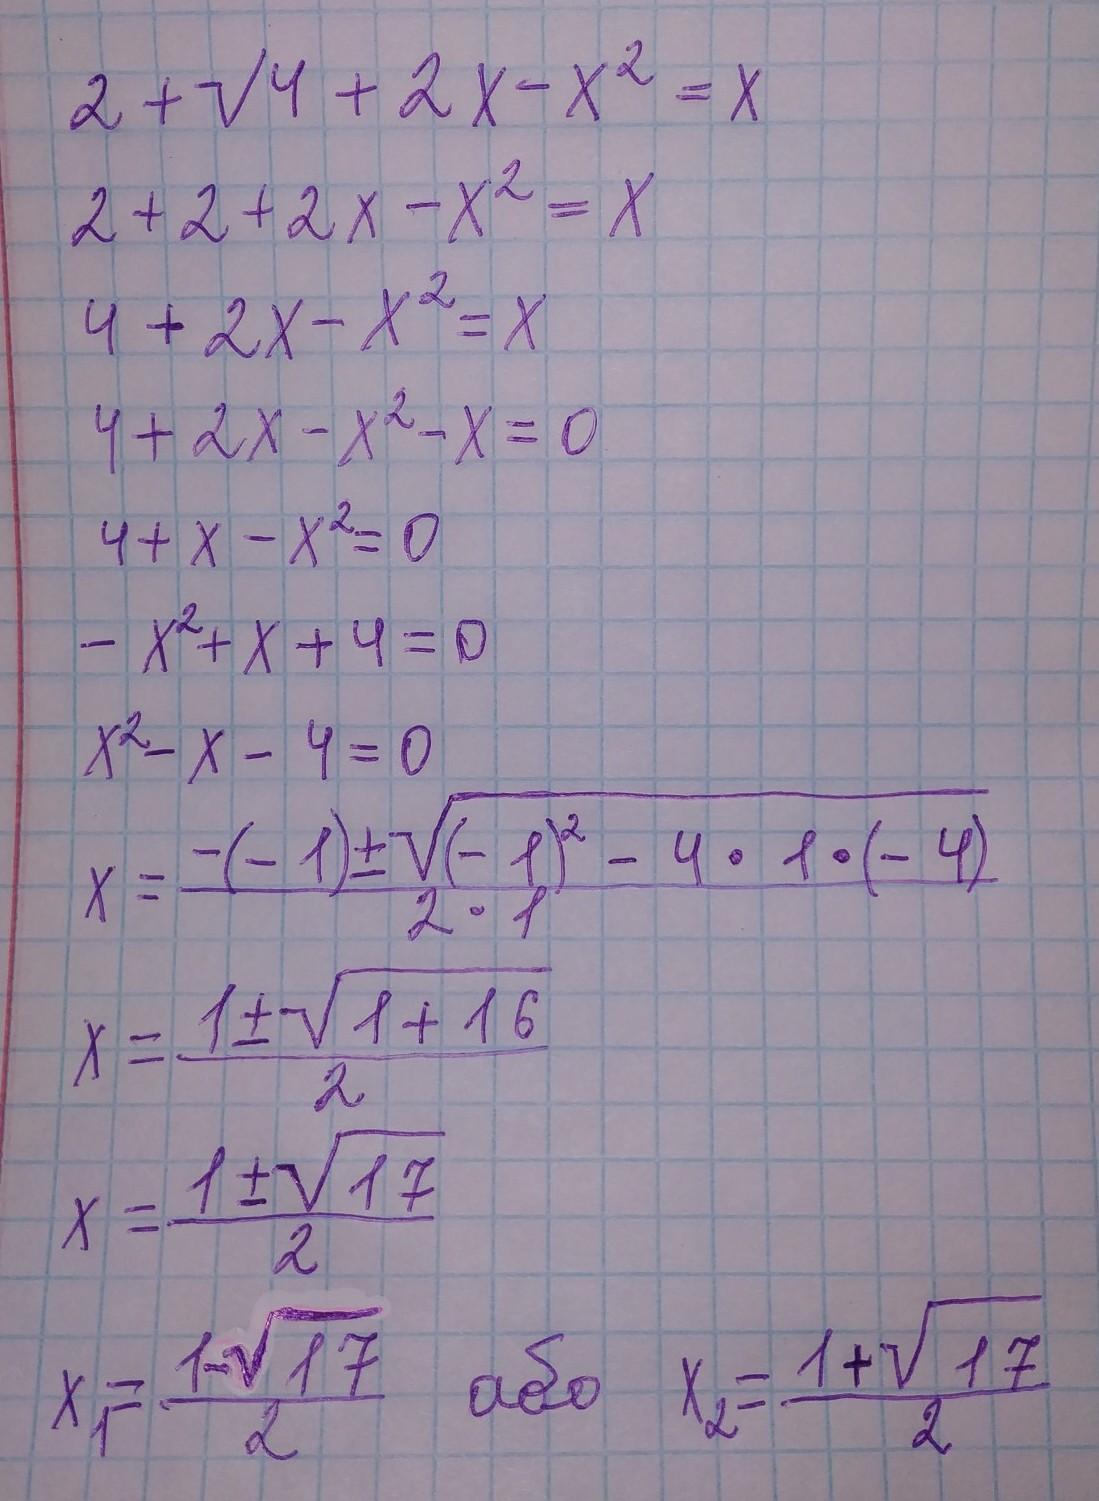 2 + √4 + 2x - x² = x
2 + 2 + 2x - x² = x
4 + 2x - x² = x
4 + 2x - x² - x = 0
4 + x - x² = 0
- x² + x + 4 = 0
x² - x - 4 = 0
x = (-(-1) ± √((-1)² - 4 · 1 · (-4))) / (2 · 1)
x = (1 ± √(1 + 16)) / 2
x = (1 ± √17) / 2
x₁ = (1 - √17) / 2 або x₂ = (1 + √17) / 2